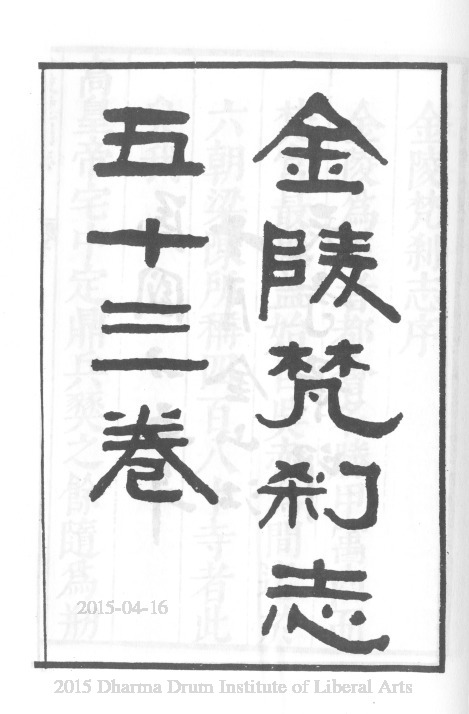 金陵梵刹志
五十三卷
2015-04-16
2015 Dharma Drum Institute of Liberal Arts